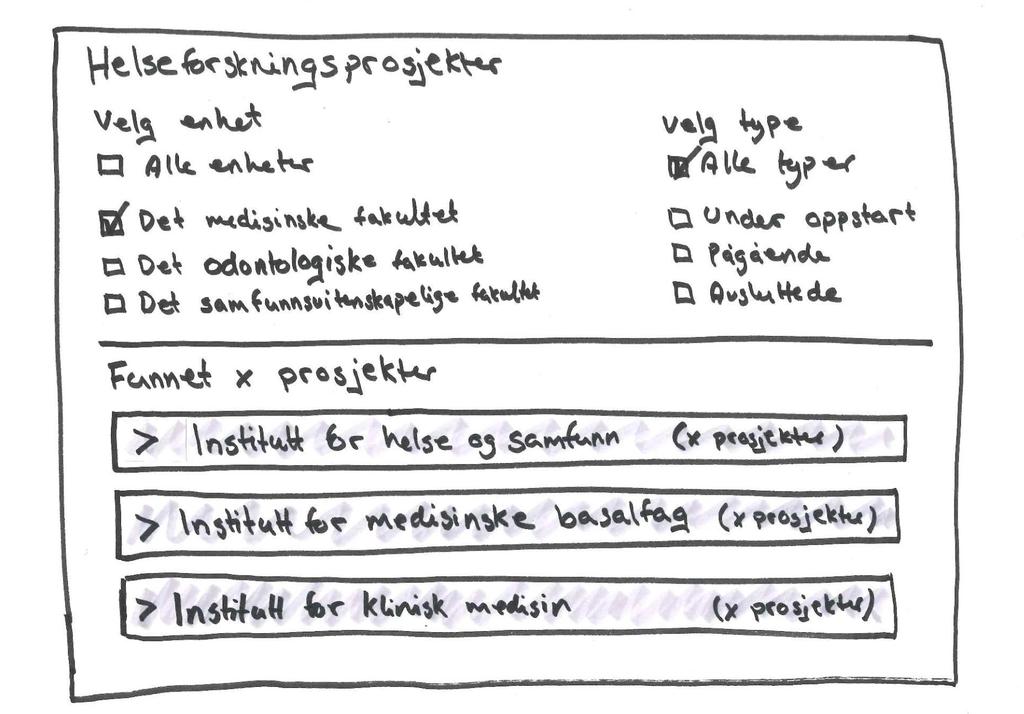 Helseforskningsprosjekter
Velg enhet
Alle enheter
Det medisinske fakultet
Det odontologiske fakultet
Det samfunnsvitenskapelige fakultet
Velg type
Alle typer
Under oppstart
Pågående
Avsluttede
Funnet x prosjekter
> Institutt for helse og samfunn (x prosjekter)
> Institutt for medisinske basalfag (x prosjekter)
> Institutt for klinisk medisin (x prosjekter)